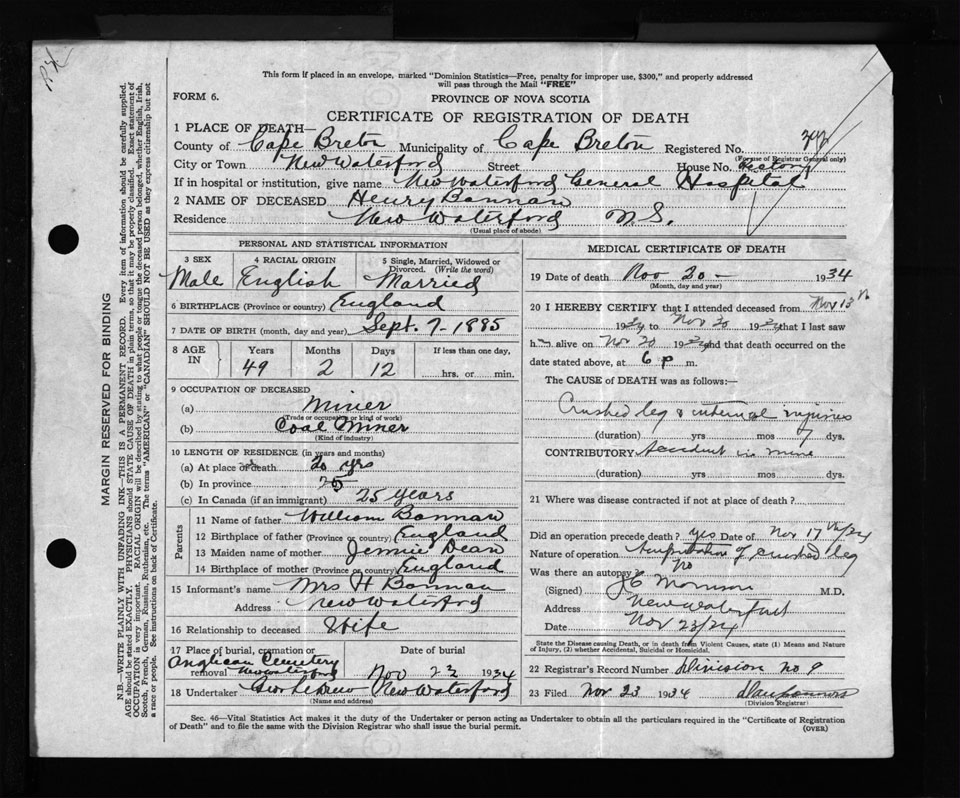 This form if placed in an envelope, marked "Dominion Statistics—Free, penalty for improper use, $300," and properly addressed
will pass through the Mail "FREE"
FORM 6.
PROVINCE OF NOVA SCOTIA
CERTIFICATE OF REGISTRATION OF DEATH
1 PLACE OF DEATH—
County of Cape Breton Municipality of Cape Breton Registered No.
(For use of Registrar General only)
City or Town New Waterford Street House No.
If in hospital or institution, give name New Waterford General Hospital
2 NAME OF DECEASED Henry Bonnan
Residence New Waterford N.S.
(Usual place of abode)
PERSONAL AND STATISTICAL INFORMATION
3 SEX 4 RACIAL ORIGIN 5 Single, Married, Widowed or Divorced. (Write the word)
Male English Married
6 BIRTHPLACE (Province or country) England
7 DATE OF BIRTH (month, day and year) Sept. 7-1885
8 AGE IN Years Months Days If less than one day,
49 2 12 hrs. or min.
9 OCCUPATION OF DECEASED
(a) Miner
(Trade or occupation or kind of work)
(b) Coal Miner
(Kind of industry)
10 LENGTH OF RESIDENCE (in years and months)
(a) At place of death 20 yrs
(b) In province 25
(c) In Canada (if an immigrant) 25 years
Parents
11 Name of father William Bonnan
12 Birthplace of father (Province or country) England
13 Maiden name of mother Jennie Dean
14 Birthplace of mother (Province or country) England
15 Informant's name Mrs H Bonnan
Address New Waterford
16 Relationship to deceased Wife
17 Place of burial, cremation or removal Date of burial
Anglican Cemetery
New Waterford Nov 22 1934
18 Undertaker New Waterford
(Name and address)
MEDICAL CERTIFICATE OF DEATH
19 Date of death Nov 20 - 1934
(Month, day and year)
20 I HEREBY CERTIFY that I attended deceased from Nov 13th
1934 to Nov 20 1934 that I last saw
him alive on Nov 20 1934 and that death occurred on the
date stated above, at 6 p m.
The CAUSE of DEATH was as follows:—
Crushed leg & internal injuries
(duration) yrs mos 7 dys.
CONTRIBUTORY Accident in mine
(duration) yrs mos dys.
21 Where was disease contracted if not at place of death?
Did an operation precede death? yes Date of Nov 17th/34
Nature of operation Amputation of crushed leg
Was there an autopsy No
(Signed) M.D.
Address New Waterford
Date Nov 23/34
State the Disease causing Death, or in death from Violent Causes, state (1) Means and Nature
of Injury, (2) whether Accidental, Suicidal or Homicidal.
22 Registrar's Record Number Division No 9
23 Filed Nov 23 1934
(Division Registrar)
Sec. 46—Vital Statistics Act makes it the duty of the Undertaker or person acting as Undertaker to obtain all the particulars required in the "Certificate of Registration
of Death" and to file the same with the Division Registrar who shall issue the burial permit. (OVER)
MARGIN RESERVED FOR BINDING
N.B.—WRITE PLAINLY WITH UNFADING INK—THIS IS A PERMANENT RECORD. Every item of information should be carefully supplied.
AGE should be stated EXACTLY. PHYSICIANS should STATE CAUSE OF DEATH in plain terms, so that it may be properly classified. Exact statement of
OCCUPATION is very important. RACIAL ORIGIN will be described by stating to what people or tongue the deceased person belonged, whether English, Irish,
Scotch, French, German, Russian, Ruthenian, etc. The terms "AMERICAN" or "CANADIAN" SHOULD NOT BE USED as they express citizenship but not
a race or people. See instructions on back of Certificate.